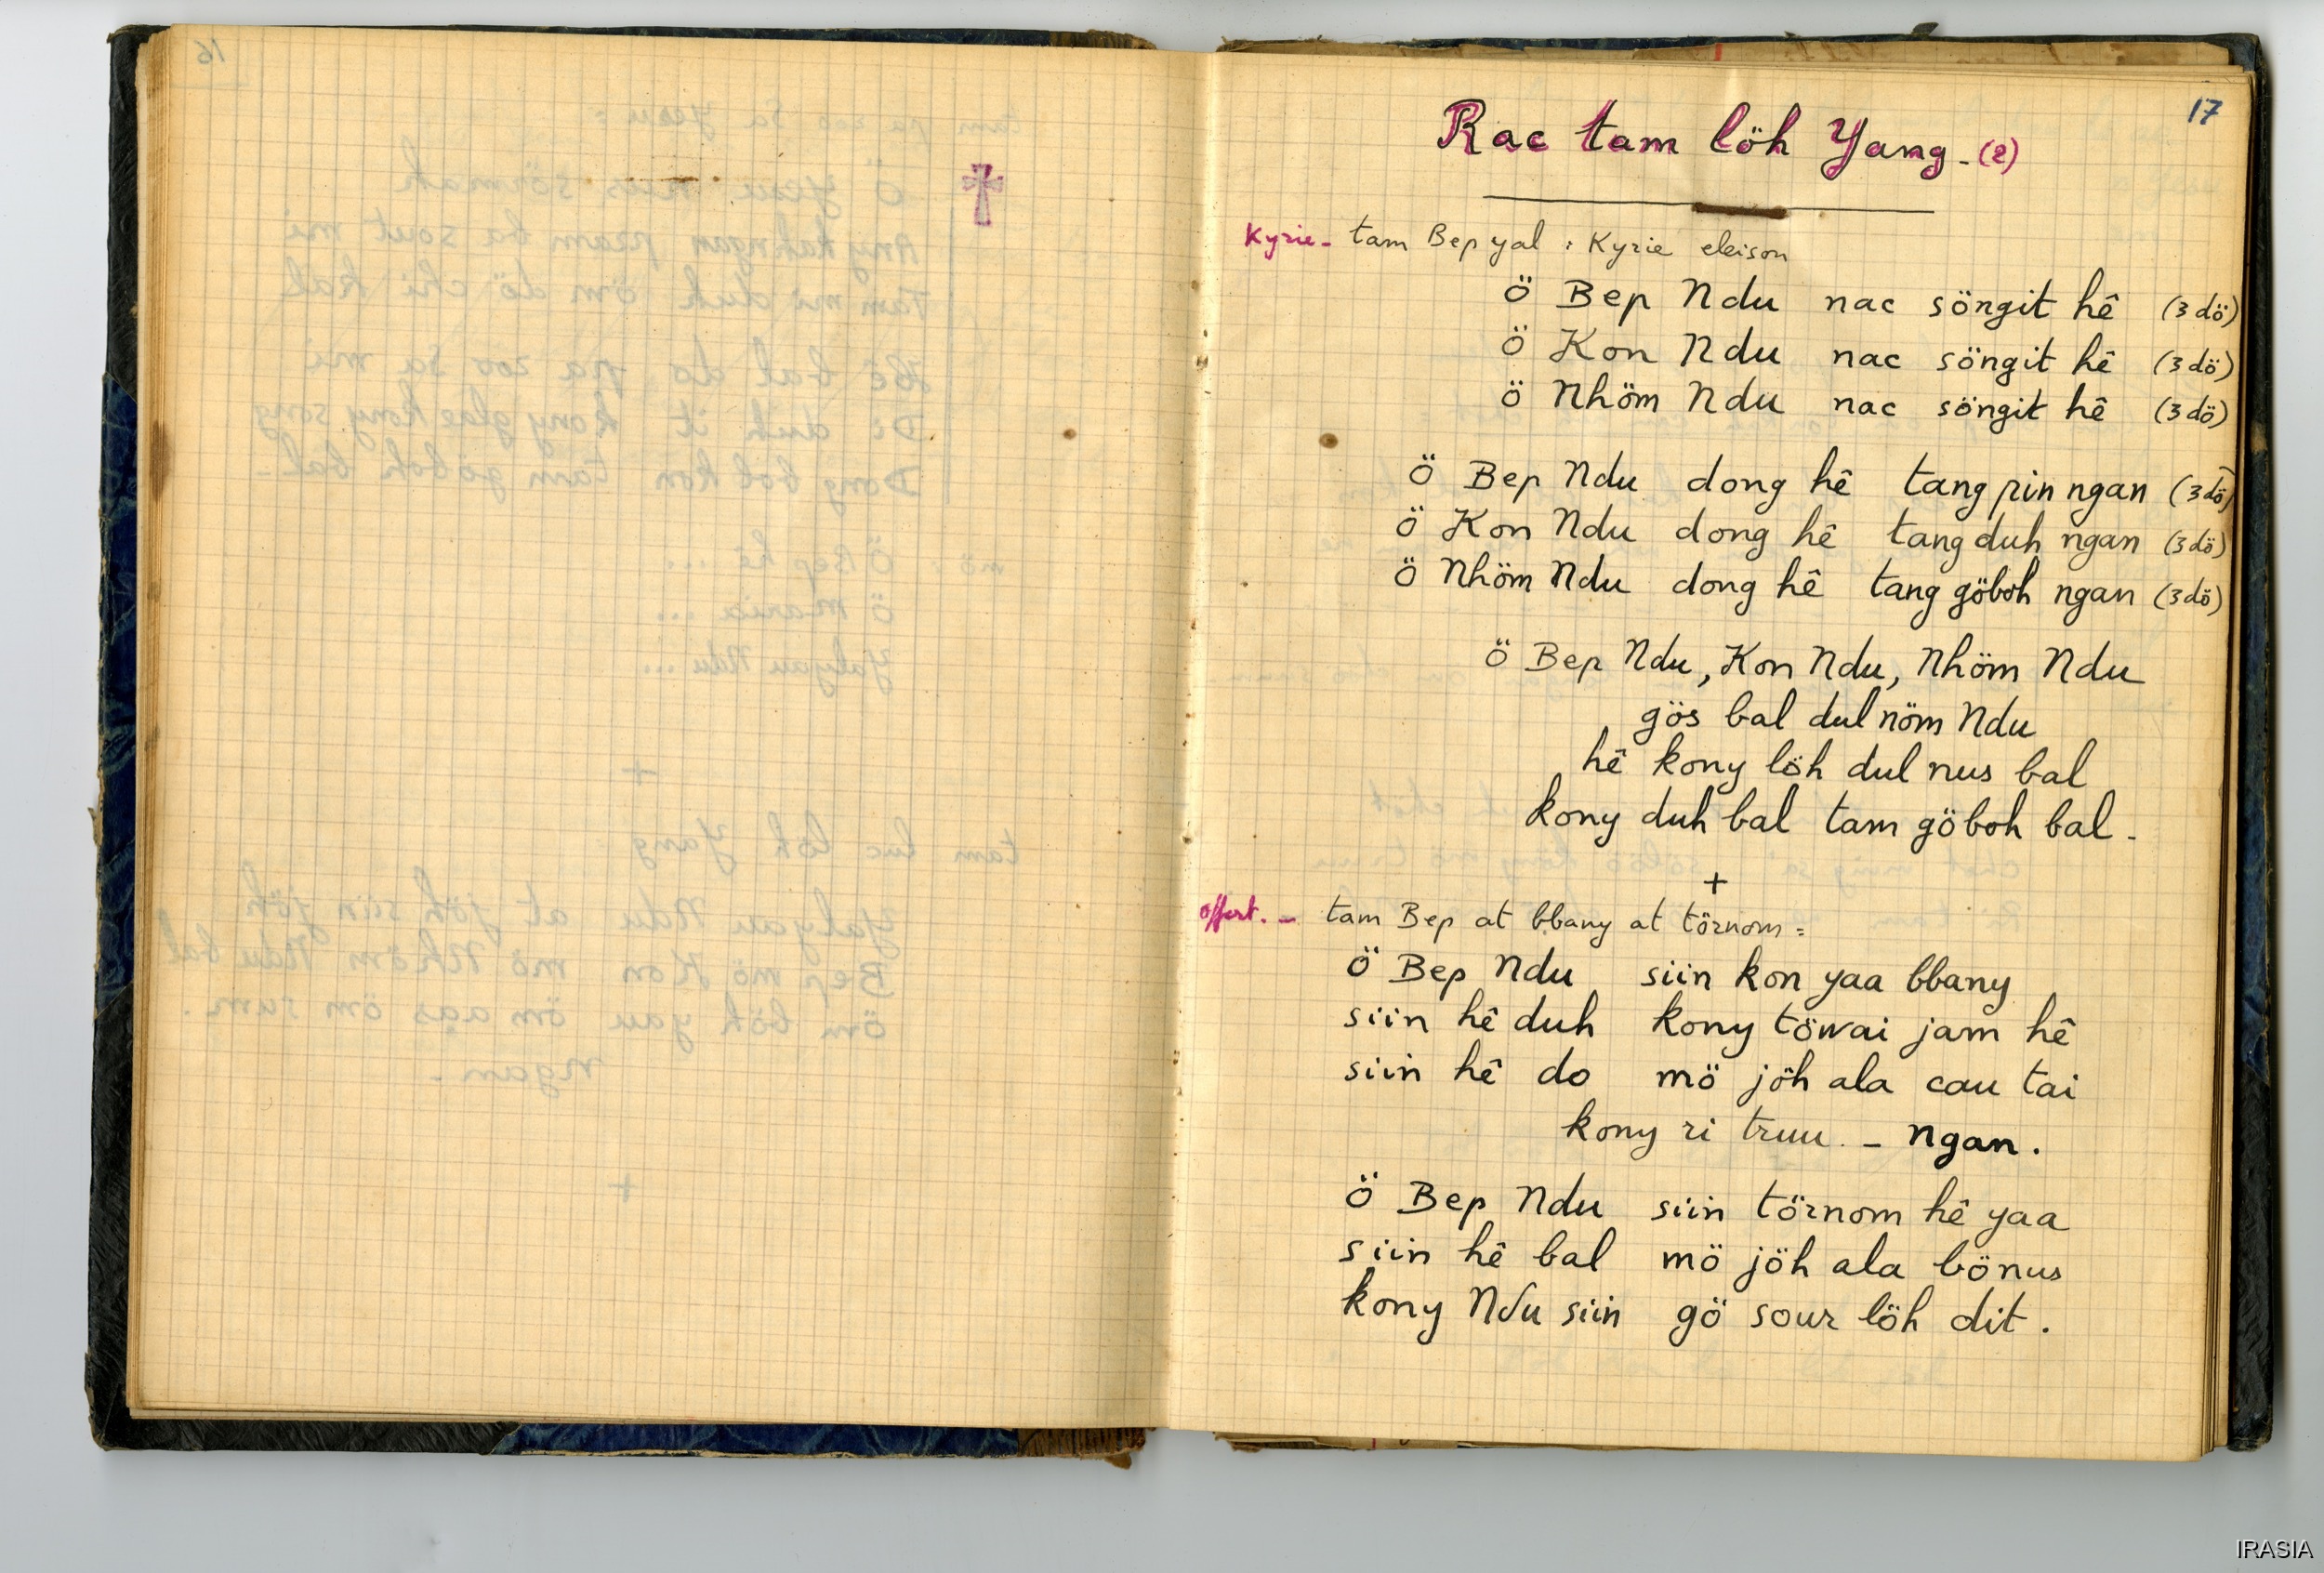 17
Rac tam löh Yang - (2)
Kyrie - tam Bep yal : Kyrie eleison
Ö Bep Ndu nac söngit hê (3 dö)
Ö Kon Ndu nac söngit hê (3 dö)
Ö Nhöm Ndu nac söngit hê (3 dö)
Ö Bep Ndu dong hê tang pin ngan (3 dö)
Ö Kon Ndu dong hê tang duh ngan (3 dö)
Ö Nhöm Ndu dong hê tang göboh ngan (3 dö)
Ö Bep Ndu, Kon Ndu, Nhöm Ndu
gös bal dul nöm Ndu
hê kony löh dul nus bal
kony duh bal tam göboh bal -
+
offert. - tam Bep at bbany at törnom =
Ö Bep Ndu siin kon yaa bbany
siin hê duh kony töwai jam hê
siin hê do mö jöh ala cau tai
kony ri truu - ngan.
Ö Bep Ndu siin törnom hê yaa
siin hê bal mö jöh ala bönus
kony Ndu siin gö sour löh dit.
IRASIA